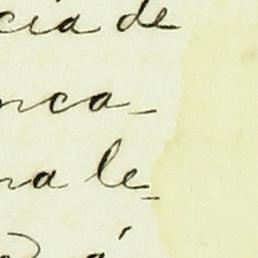 cia de
nca-
na le-
á